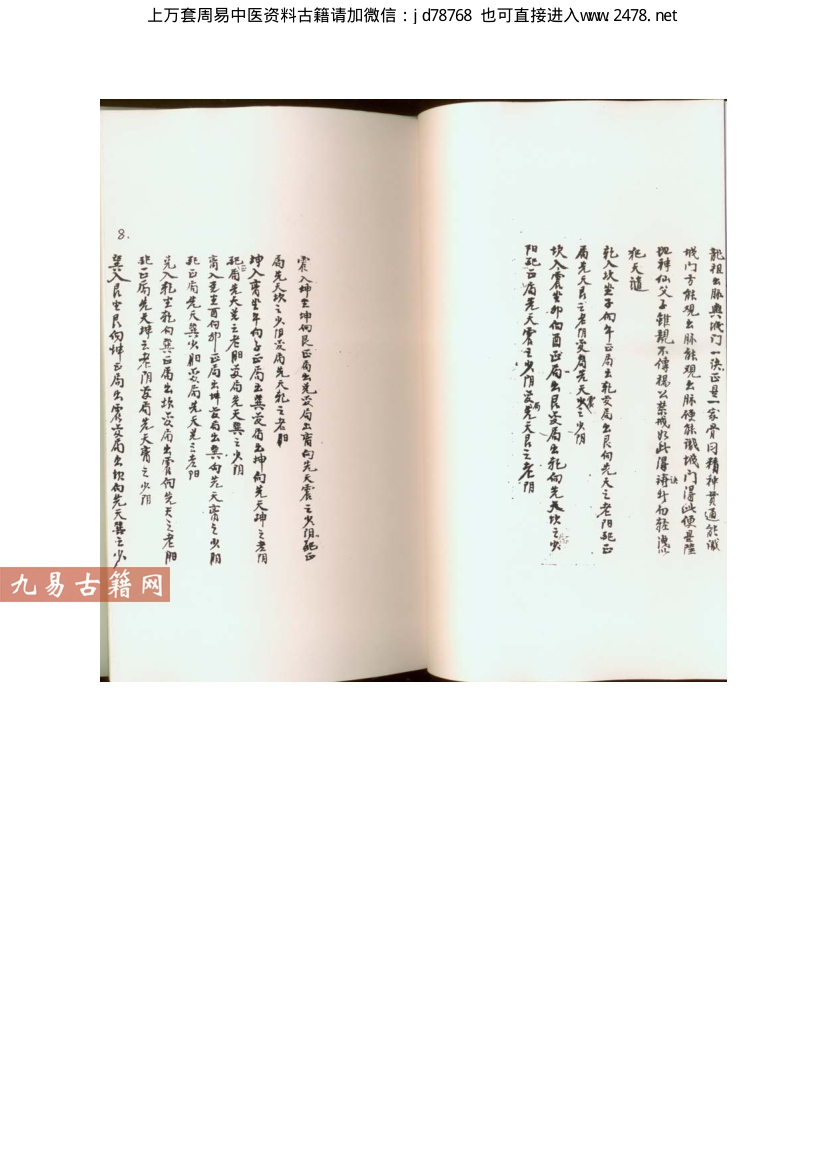 上万套周易中医资料古籍请加微信：jd78768 也可直接进入www.2478.net
龍祖出脉與城门一诀正是一家骨肉精神贯通能识
城门方能观出脉能观出脉便能識城门得此便是陸
地神仙父子雖親不傳楊公禁戒如此得诀切勿轻洩
犯天譴
乾入坎坐子向午正局出乾变局出艮向先天之老阳配正
局先天艮之老阴变局先天之少阴
坎入震坐卯向酉正局出艮变局出乾向先天坎之少
阳配正局先天震之少阴变先天艮之老阴
震入坤坐坤向艮正局出兑变局出离向先天震之少阴配正
局先天坎之少阴变局先天乾之老阳
坤入离坐午向子正局出巽变局出坤向先天坤之老阴
配局先天兑之老阳变局先天巽之少阴
离入兑坐酉向卯正局出坤变局出巽向先天离之少阴
配正局先天巽少阳变局先天兑之老阳
兑入乾坐乾向巽正局出坎变局出震向先天之老阳
配正局先天坤之老阴变局先天离之少阴
8.
巽入艮坐艮向坤正局出震变局出坎向先天巽之少
九易古籍网